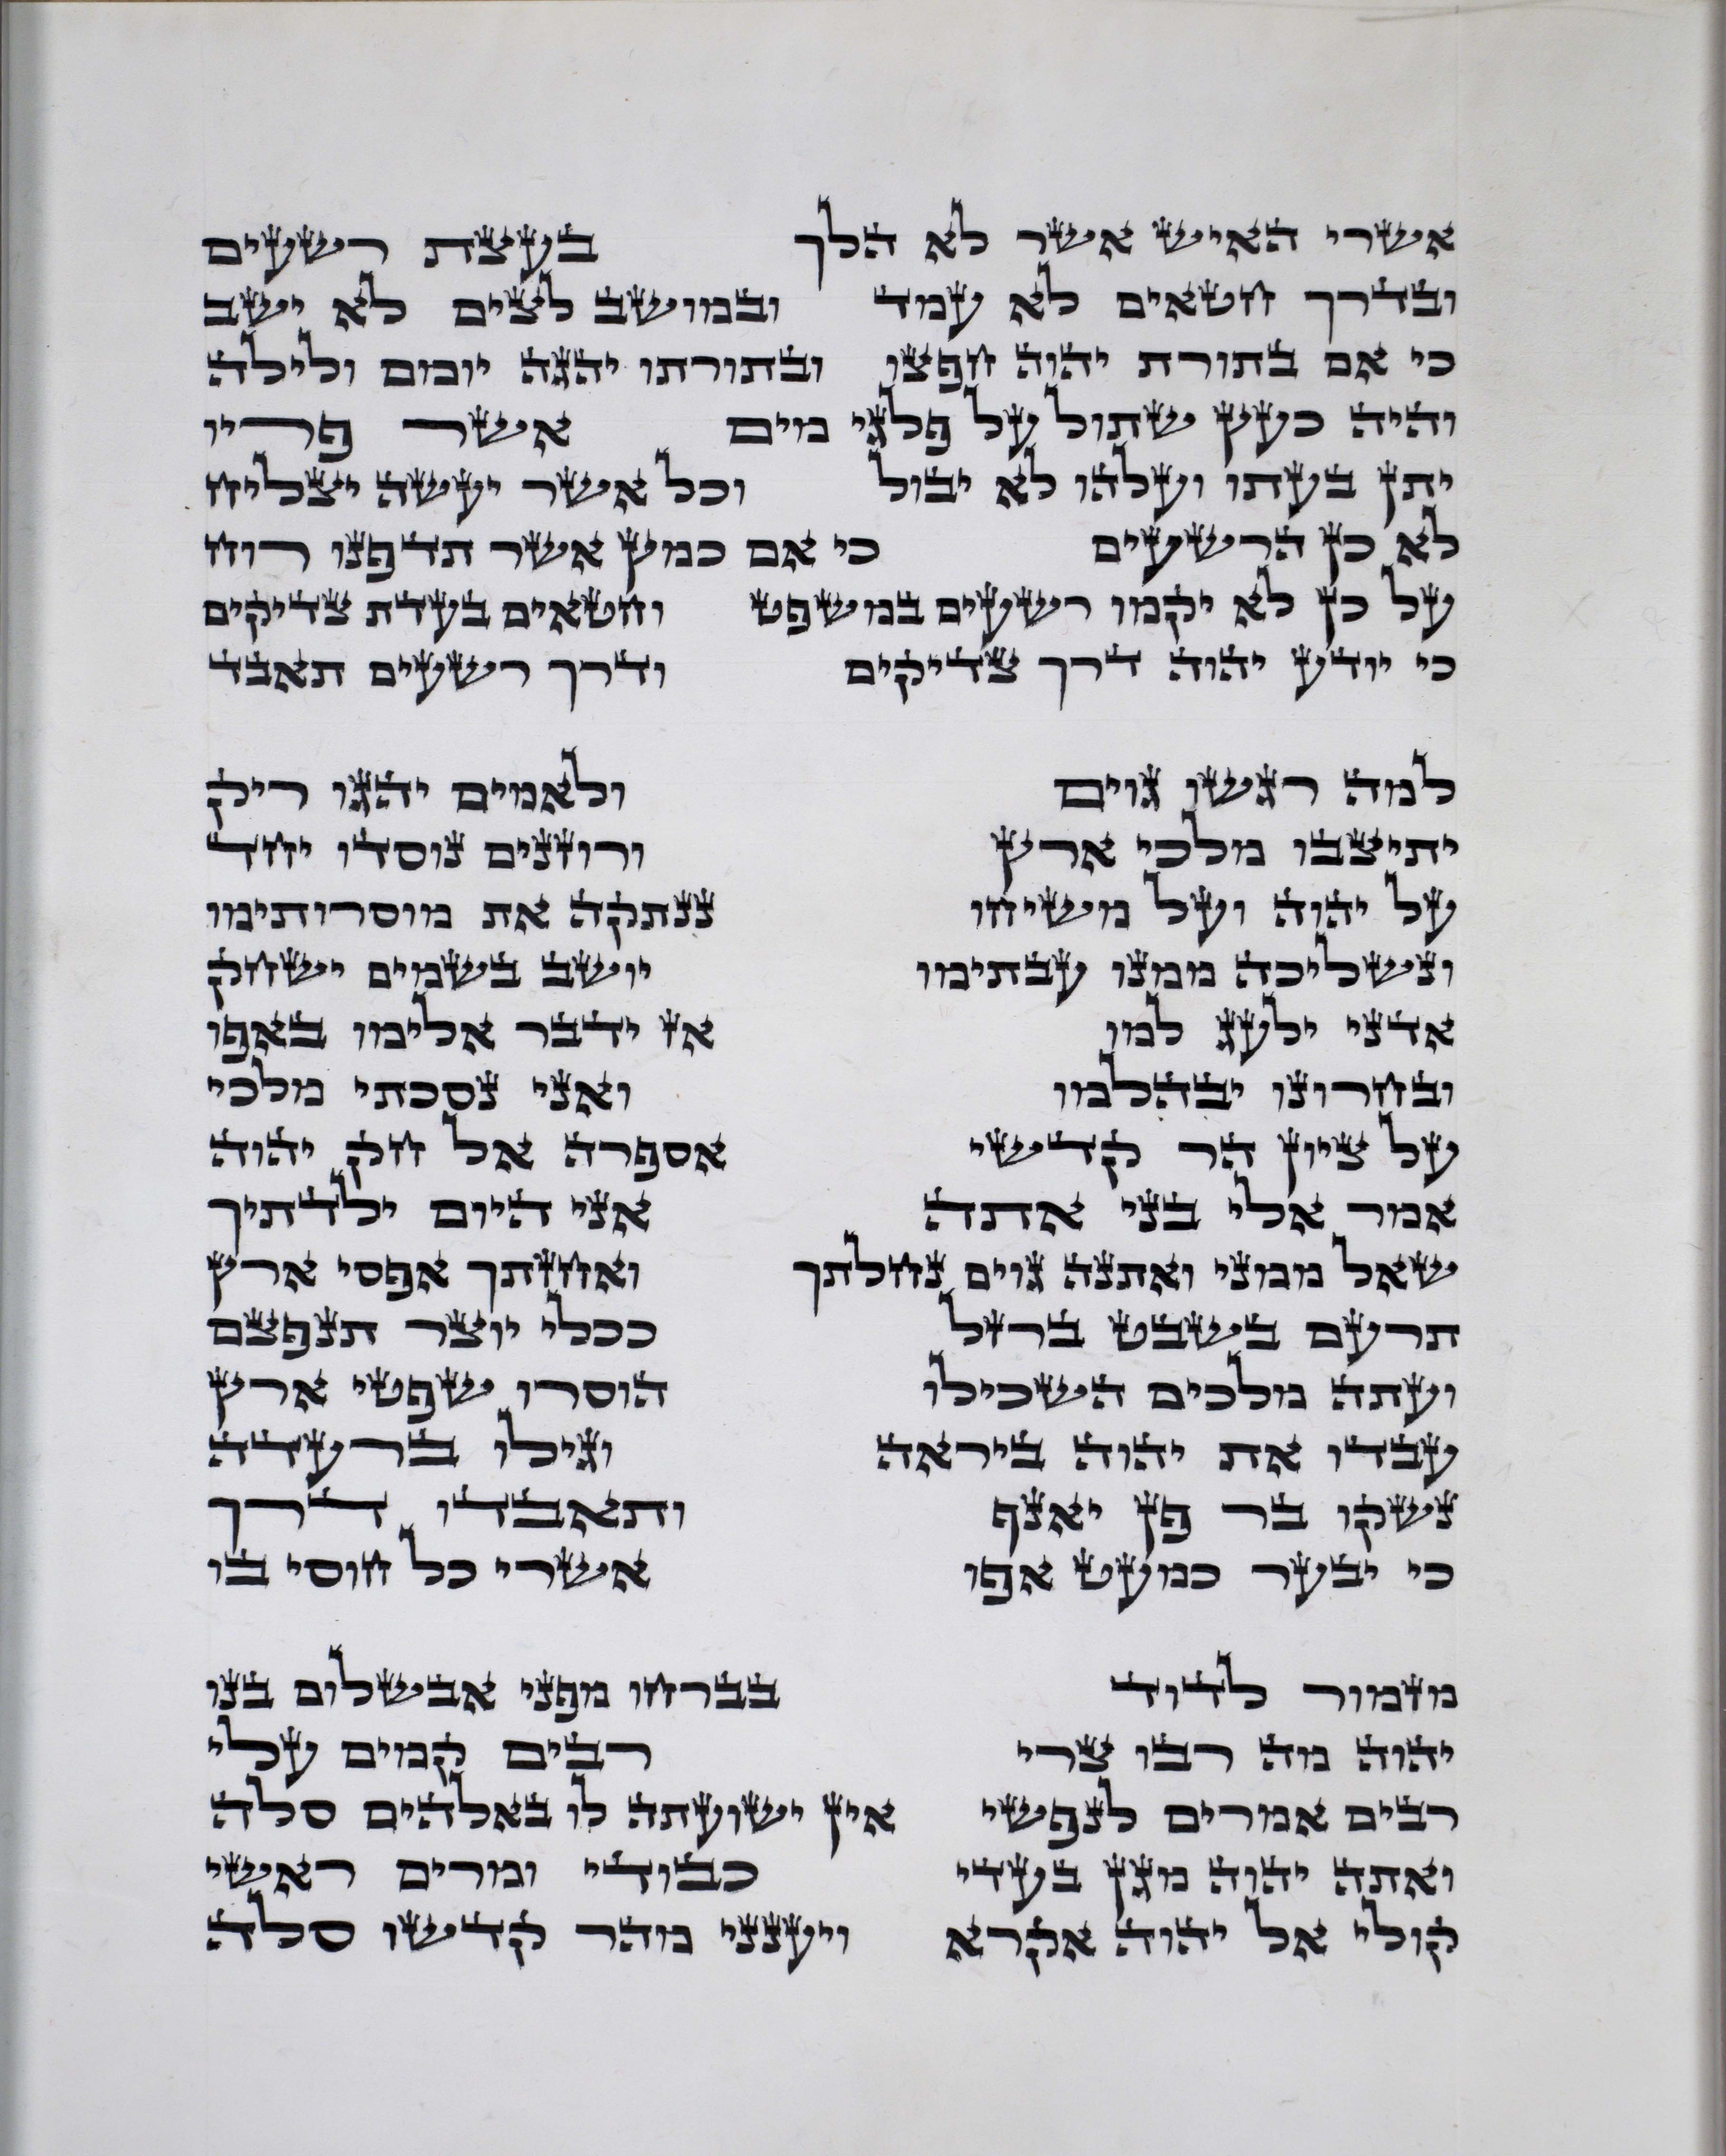 אשרי האיש אשר לא הלך בעצת רשעים
ובדרך חטאים לא עמד ובמושב לצים לא ישב
כי אם בתורת יהוה חפצו ובתורתו יהגה יומם ולילה
והיה כעץ שתול על פלגי מים אשר פריו
יתן בעתו ועלהו לא יבול וכל אשר יעשה יצליח
לא כן הרשעים כי אם כמץ אשר תדפנו רוח
על כן לא יקמו רשעים במשפט וחטאים בעדת צדיקים
כי יודע יהוה דרך צדיקים ודרך רשעים תאבד
למה רגשו גוים ולאמים יהגו ריק
יתיצבו מלכי ארץ ורוזנים נוסדו יחד
על יהוה ועל משיחו ננתקה את מוסרותימו
ונשליכה ממנו עבתימו יושב בשמים ישחק
אדני ילעג למו אז ידבר אלימו באפו
ובחרונו יבהלמו ואני נסכתי מלכי
על ציון הר קדשי אספרה אל חק יהוה
אמר אלי בני אתה אני היום ילדתיך
שאל ממני ואתנה גוים נחלתך ואחזתך אפסי ארץ
תרעם בשבט ברזל ככלי יוצר תנפצם
ועתה מלכים השכילו הוסרו שפטי ארץ
עבדו את יהוה ביראה וגילו ברעדה
נשקו בר פן יאנף ותאבדו דרך
כי יבער כמעט אפו אשרי כל חוסי בו
מזמור לדוד בברחו מפני אבשלום בנו
יהוה מה רבו צרי רבים קמים עלי
רבים אמרים לנפשי אין ישועתה לו באלהים סלה
ואתה יהוה מגן בעדי כבודי ומרים ראשי
קולי אל יהוה אקרא ויענני מהר קדשו סלה